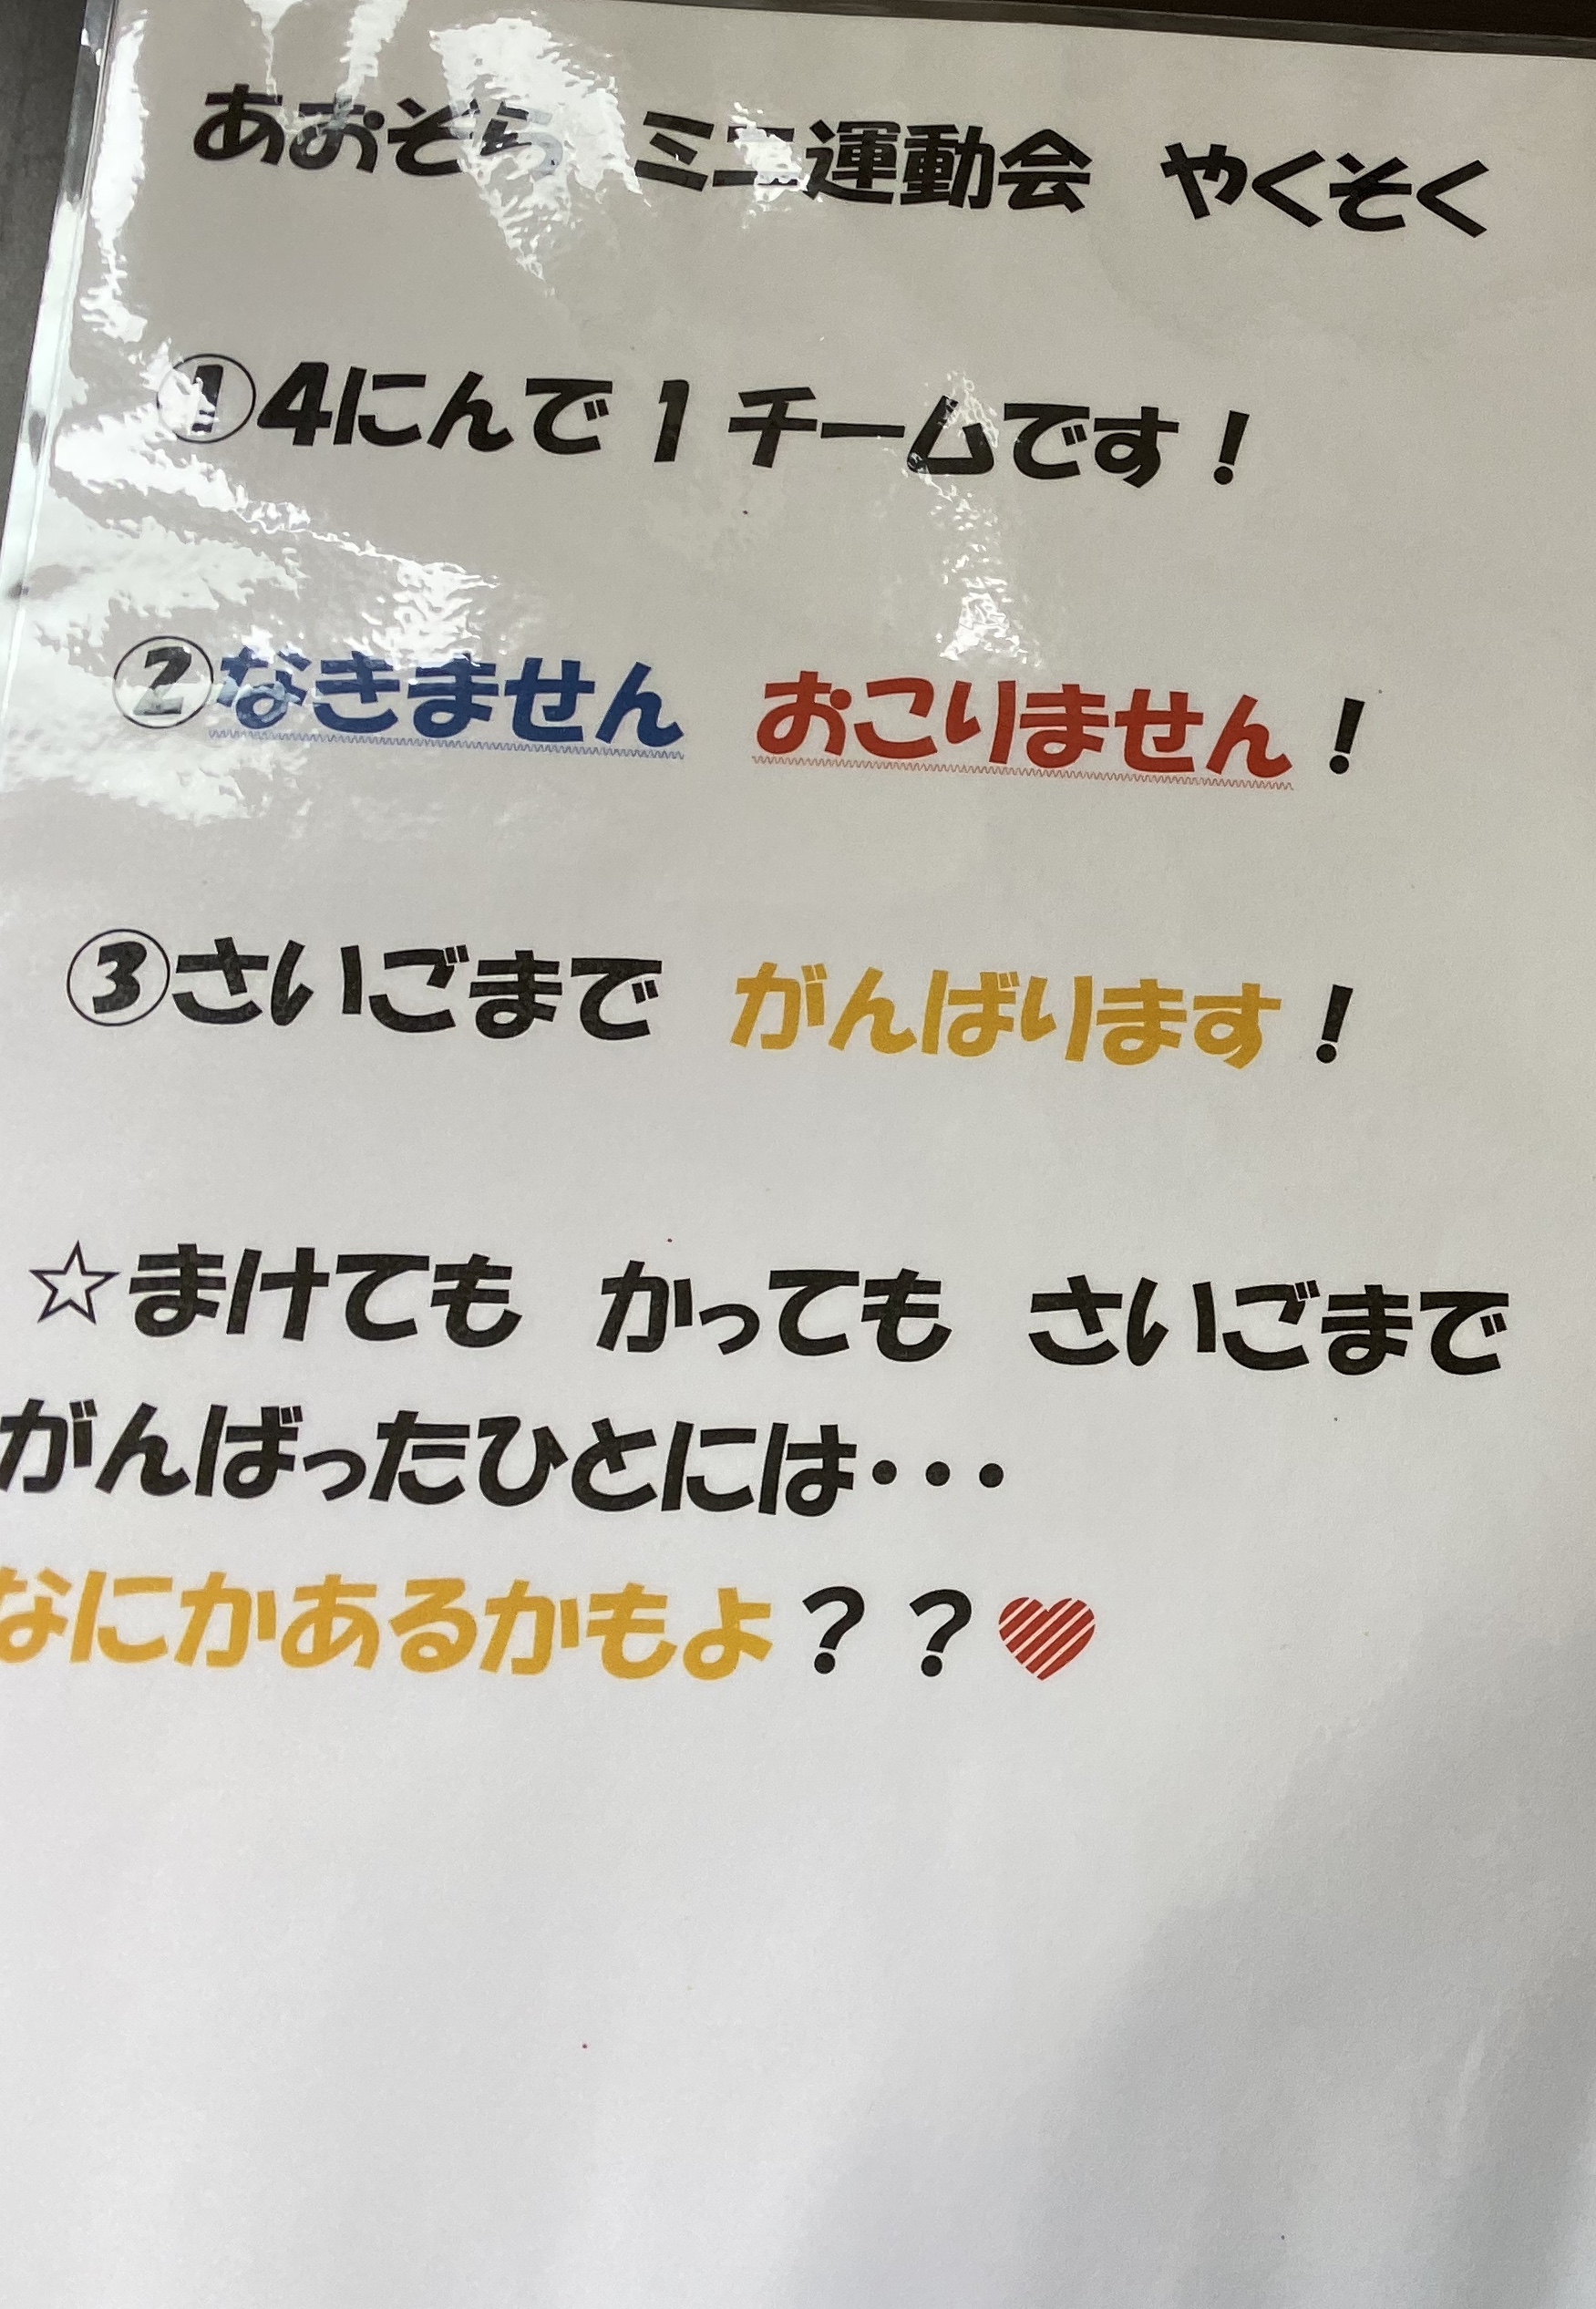 あおぞら　ミニ運動会　やくそく
①4にんで１チームです！
②なきません　おこりません！
③さいごまで　がんばります！
☆まけても　かっても　さいごまで
がんばったひとには・・・
なにかあるかもよ？？